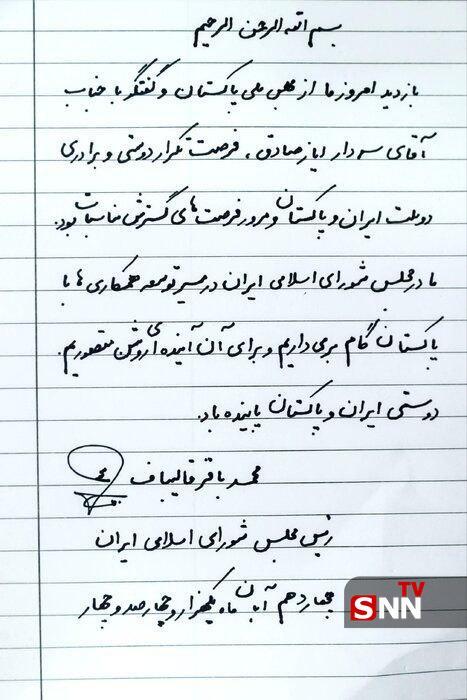 بسم الله الرحمن الرحیم
بازدید امروز ما از مجلس ملی پاکستان و گفتگو با جناب
آقای سردار ایاز صادق، فرصت تکرار دوستی و برادری
دو ملت ایران و پاکستان و مرور فرصت‌های گسترش مناسبات بود.
ما در مجلس شورای اسلامی ایران در مسیر توسعه همکاری‌ها با
پاکستان گام برمی‌داریم و برای آن آینده‌ای روشن متصوریم.
دوستی ایران و پاکستان پاینده باد.
محمد باقر قالیباف
رئیس مجلس شورای اسلامی ایران
چهاردهم آبان ماه یکهزار و چهارصد و چهار
SNN TV